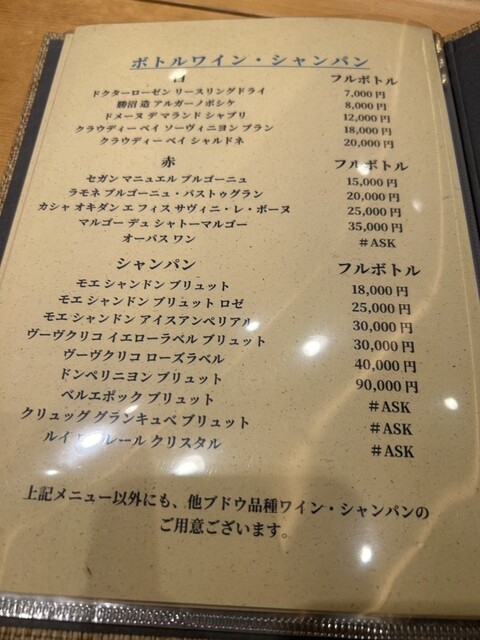 ボトルワイン・シャンパン
白 フルボトル
ドクターローゼン リースリングドライ 7,000 円
勝沼 造 アルガーノボシケ 8,000 円
ドメーヌ デ マランド シャブリ 12,000 円
クラウディー ベイ ソーヴィニヨン ブラン 18,000 円
クラウディー ベイ シャルドネ 20,000 円
赤 フルボトル
セガン マニュエル ブルゴーニュ 15,000 円
ラモネ ブルゴーニュ・パストゥグラン 20,000 円
カシャ オキダン エ フィス サヴィニ・レ・ボーヌ 25,000 円
マルゴー デュ シャトーマルゴー 35,000 円
オーパス ワン #ASK
シャンパン フルボトル
モエ シャンドン ブリュット 18,000 円
モエ シャンドン ブリュット ロゼ 25,000 円
モエ シャンドン アイスアンペリアル 30,000 円
ヴーヴクリコ イエローラベル ブリュット 30,000 円
ヴーヴクリコ ローズラベル 40,000 円
ドンペリニヨン ブリュット 90,000 円
ベルエポック ブリュット #ASK
クリュッグ グランキュベ ブリュット #ASK
ルイ レール クリスタル #ASK
上記メニュー以外にも、他ブドウ品種ワイン・シャンパンの
ご用意ございます。